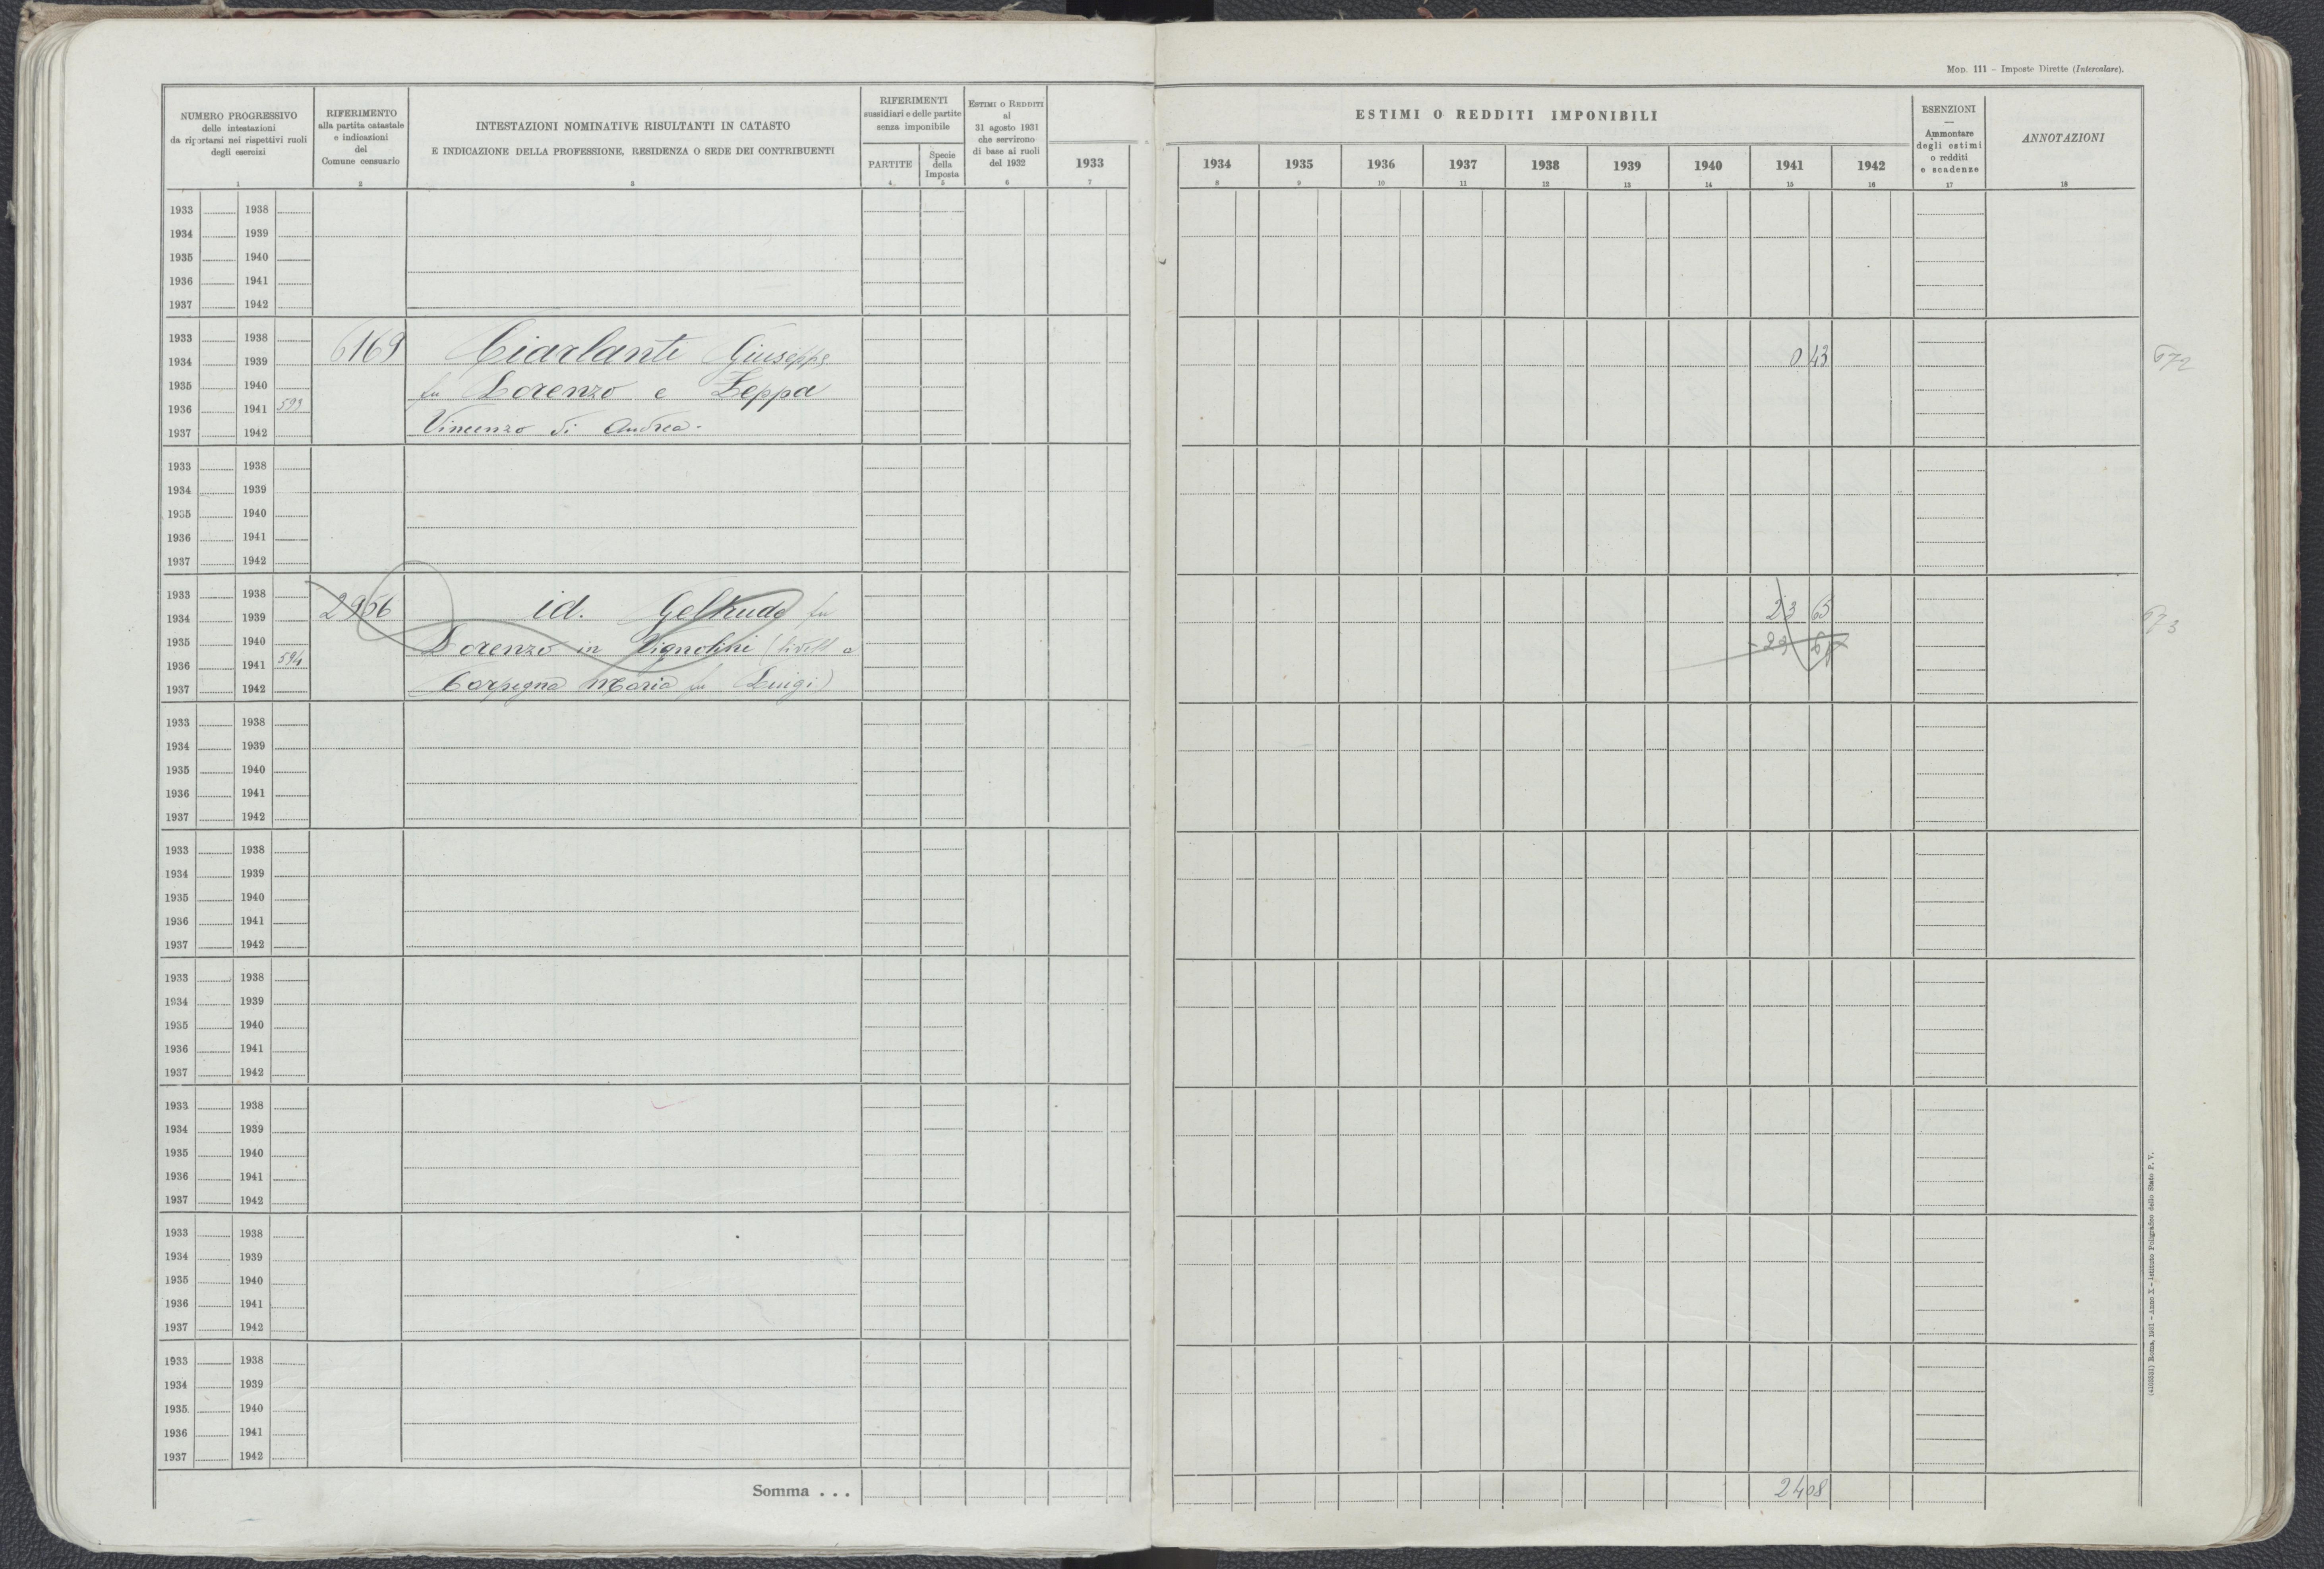 MOD. 111 – Imposte Dirette (Intercalare).
NUMERO PROGRESSIVO
delle intestazioni
da riportarsi nei rispettivi ruoli
degli esercizi
1
RIFERIMENTO
alla partita catastale
e indicazioni
del
Comune censuario
2
INTESTAZIONI NOMINATIVE RISULTANTI IN CATASTO
E INDICAZIONE DELLA PROFESSIONE, RESIDENZA O SEDE DEI CONTRIBUENTI
3
RIFERIMENTI
sussidiari e delle partite
senza imponibile
PARTITE
4
Specie
della
Imposta
5
ESTIMI O REDDITI
al
31 agosto 1931
che servirono
di base ai ruoli
del 1932
6
1933
7
ESTIMI O REDDITI IMPONIBILI
1934 1935 1936 1937 1938 1939 1940 1941 1942
8 9 10 11 12 13 14 15 16
ESENZIONI
—
Ammontare
degli estimi
o redditi
e scadenze
17
ANNOTAZIONI
18
1933 1938
1934 1939
1935 1940
1936 1941
1937 1942
1933 1938
6169 Ciarlanti Giuseppe 0 43 672
1934 1939
1935 1940 fu Lorenzo e Zeppa
1936 1941 593
1937 1942 Vincenzo di Andrea.
1933 1938
1934 1939
1935 1940
1936 1941
1937 1942
1933 1938
2956 id. Geltrude fu 23 65 673
1934 1939
1935 1940 Lorenzo in Vignolini (livell a - 23 65
1936 1941 594
1937 1942 Carpegna Maria fu Luigi)
1933 1938
1934 1939
1935 1940
1936 1941
1937 1942
1933 1938
1934 1939
1935 1940
1936 1941
1937 1942
1933 1938
1934 1939
1935 1940
1936 1941
1937 1942
1933 1938
1934 1939
1935 1940
1936 1941
1937 1942
1933 1938
1934 1939
1935 1940
1936 1941
1937 1942
1933 1938
1934 1939
1935 1940
1936 1941
1937 1942
Somma . . . 24 08
(4103531) Roma, 1931 – Anno X – Istituto Poligrafico dello Stato P. V.